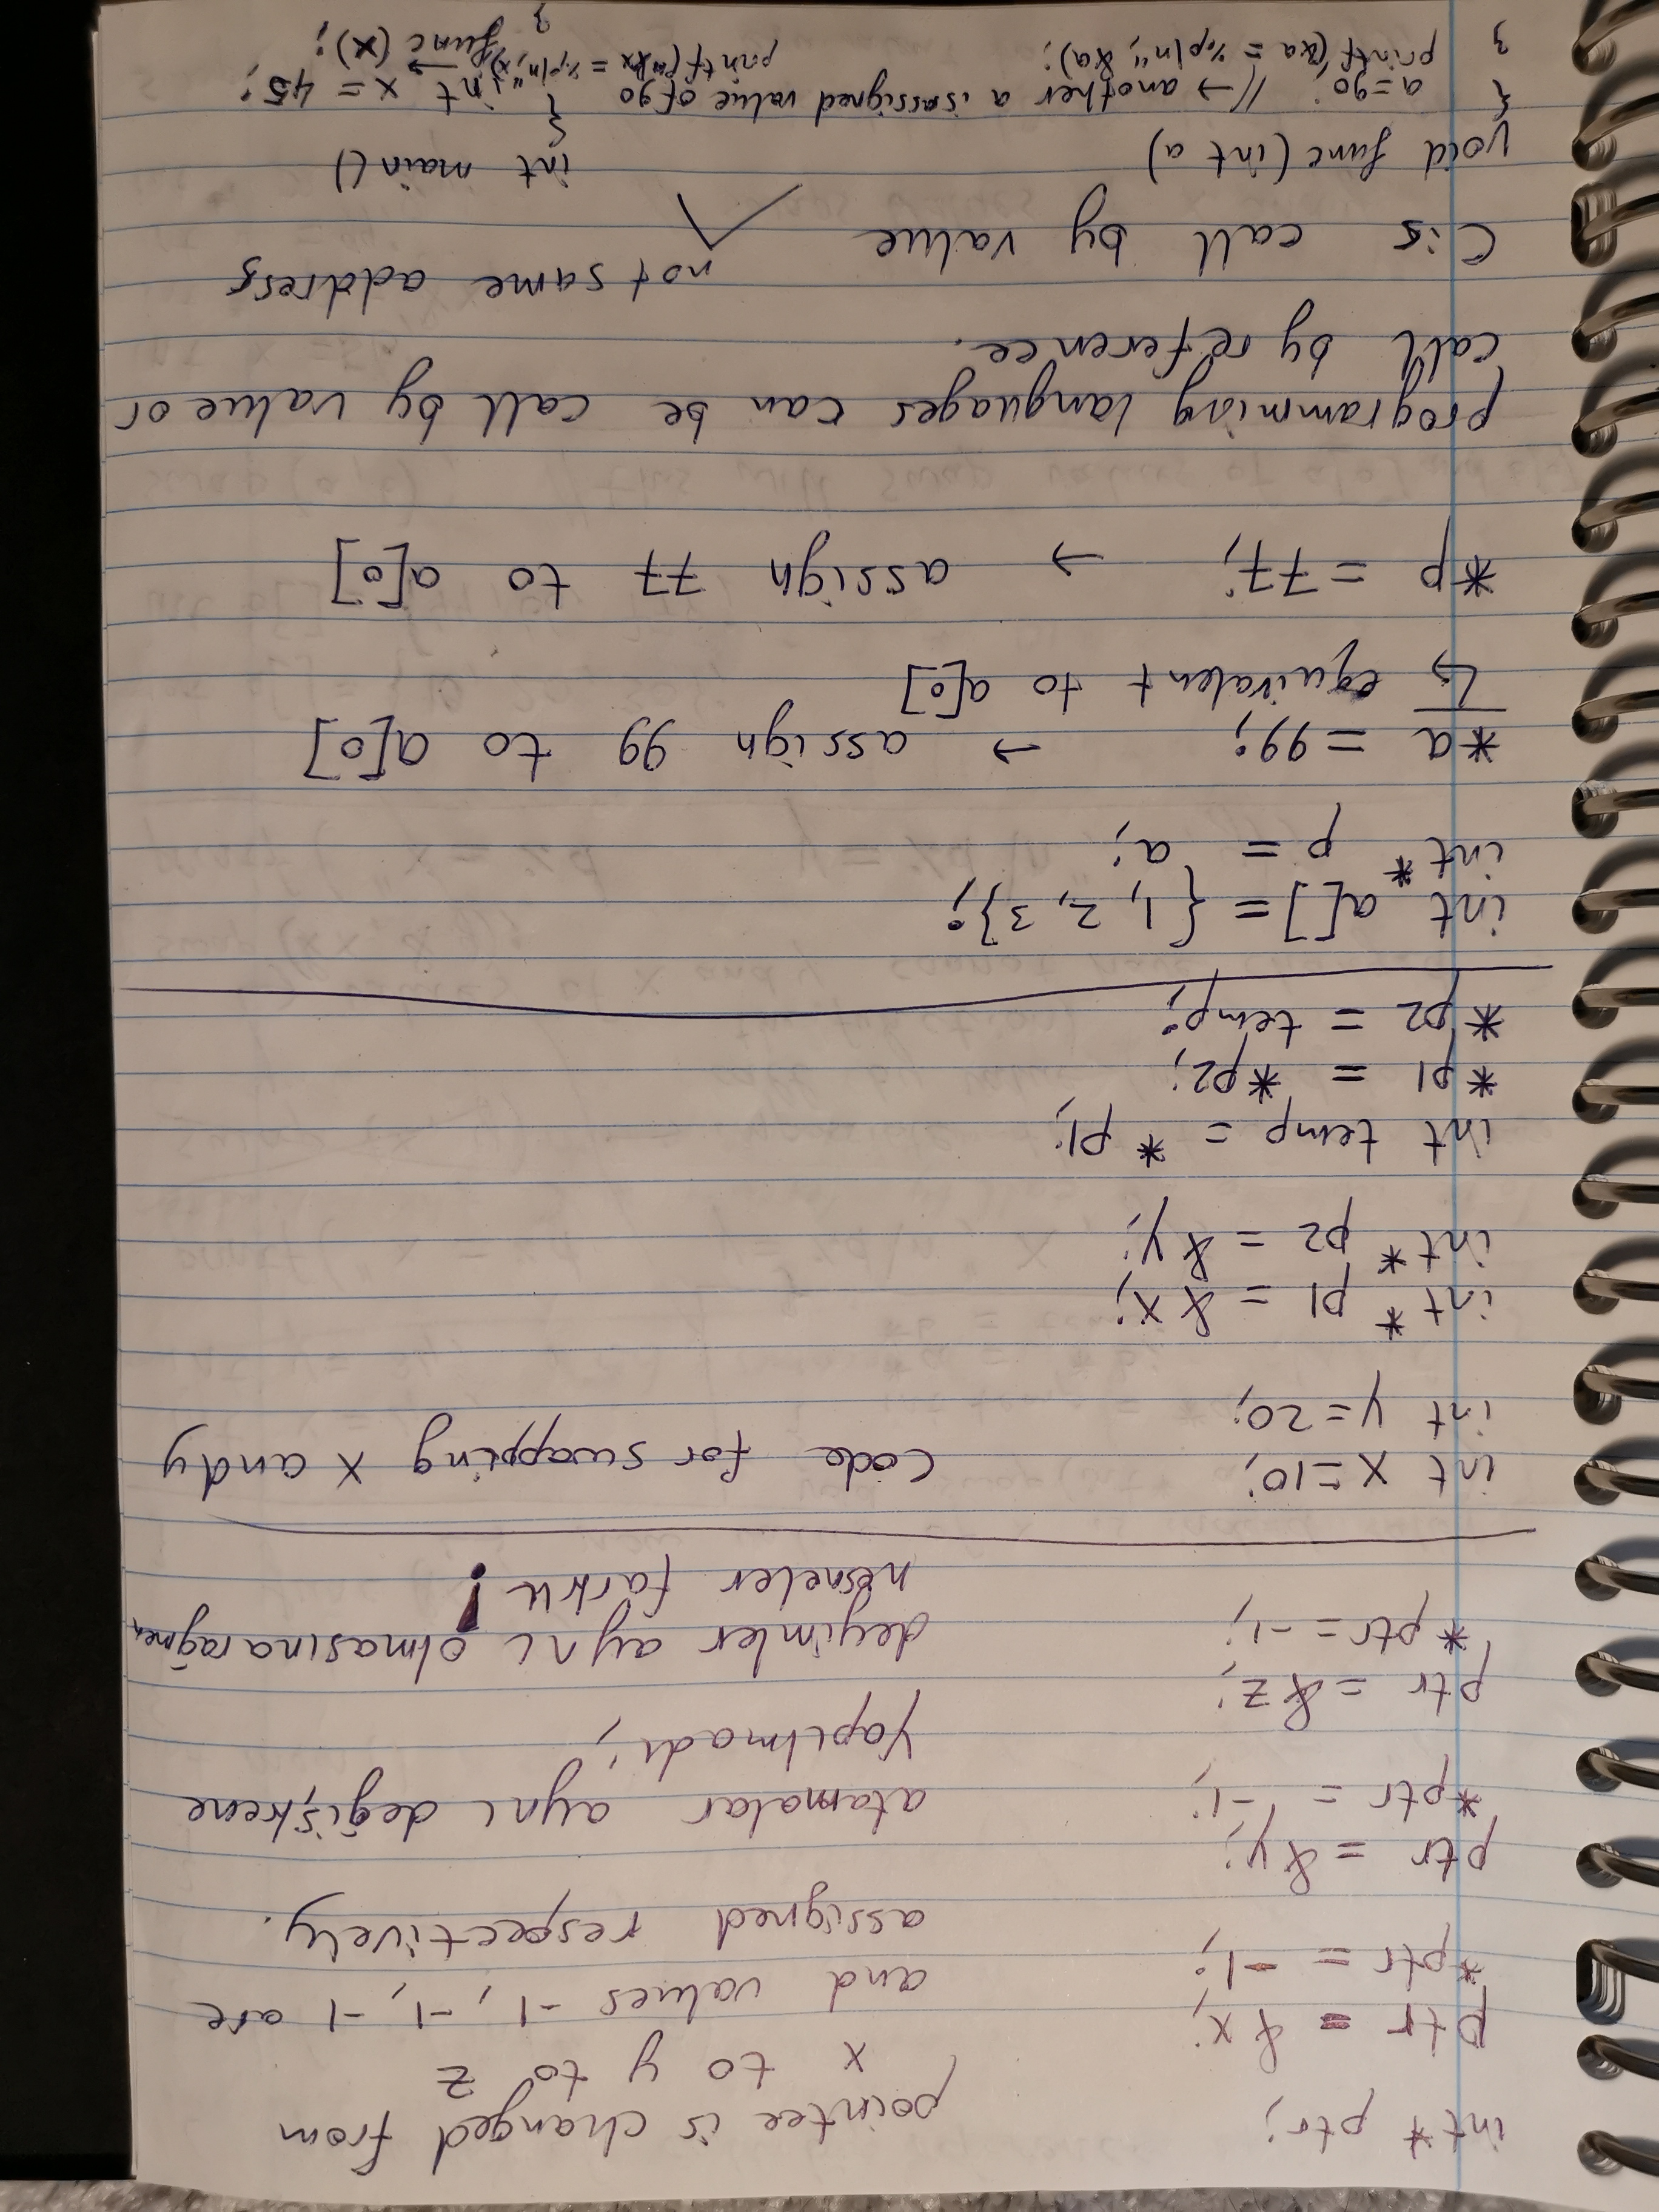 int* ptr;
ptr = &x;
*ptr = -1;
ptr = &y;
*ptr = -1;
ptr = &z;
*ptr = -1;
pointee is changed from
x to y to z
and values -1, -1, -1 are
assigned respectively.
atamalar aynı değişkene
yapılmadı;
deyimler aynı olmasına rağmen
nesneler farklı!
int x=10;
int y=20;
Code for swapping x and y
int* p1 = &x;
int* p2 = &y;
int temp = *p1;
*p1 = *p2;
*p2 = temp;
int a[] = {1, 2, 3};
int* p = a;
*a = 99; → assign 99 to a[0]
↳ equivalent to a[0]
*p = 77; → assign 77 to a[0]
programming languages can be call by value or
call by reference.
C is call by value
not same address
void func(int a)
{
a=90; // → another a is assigned value of 90
printf(&a = %p\n", &a);
}
int main()
{
int x = 45;
printf("&x = %p\n", x);
func(x);
}